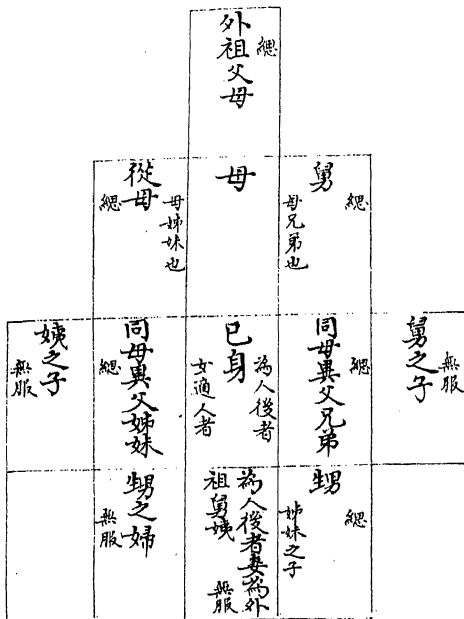 外祖父母
緦
舅
緦
母兄弟也
母
從母
母姊妹也
緦
舅之子
無服
同母異父兄弟
緦
己身
為人後者
女適人者
同母異父姊妹
緦
姨之子
無服
甥
緦
姊妹之子
為人後者妻為外
祖舅姨
無服
甥之婦
無服